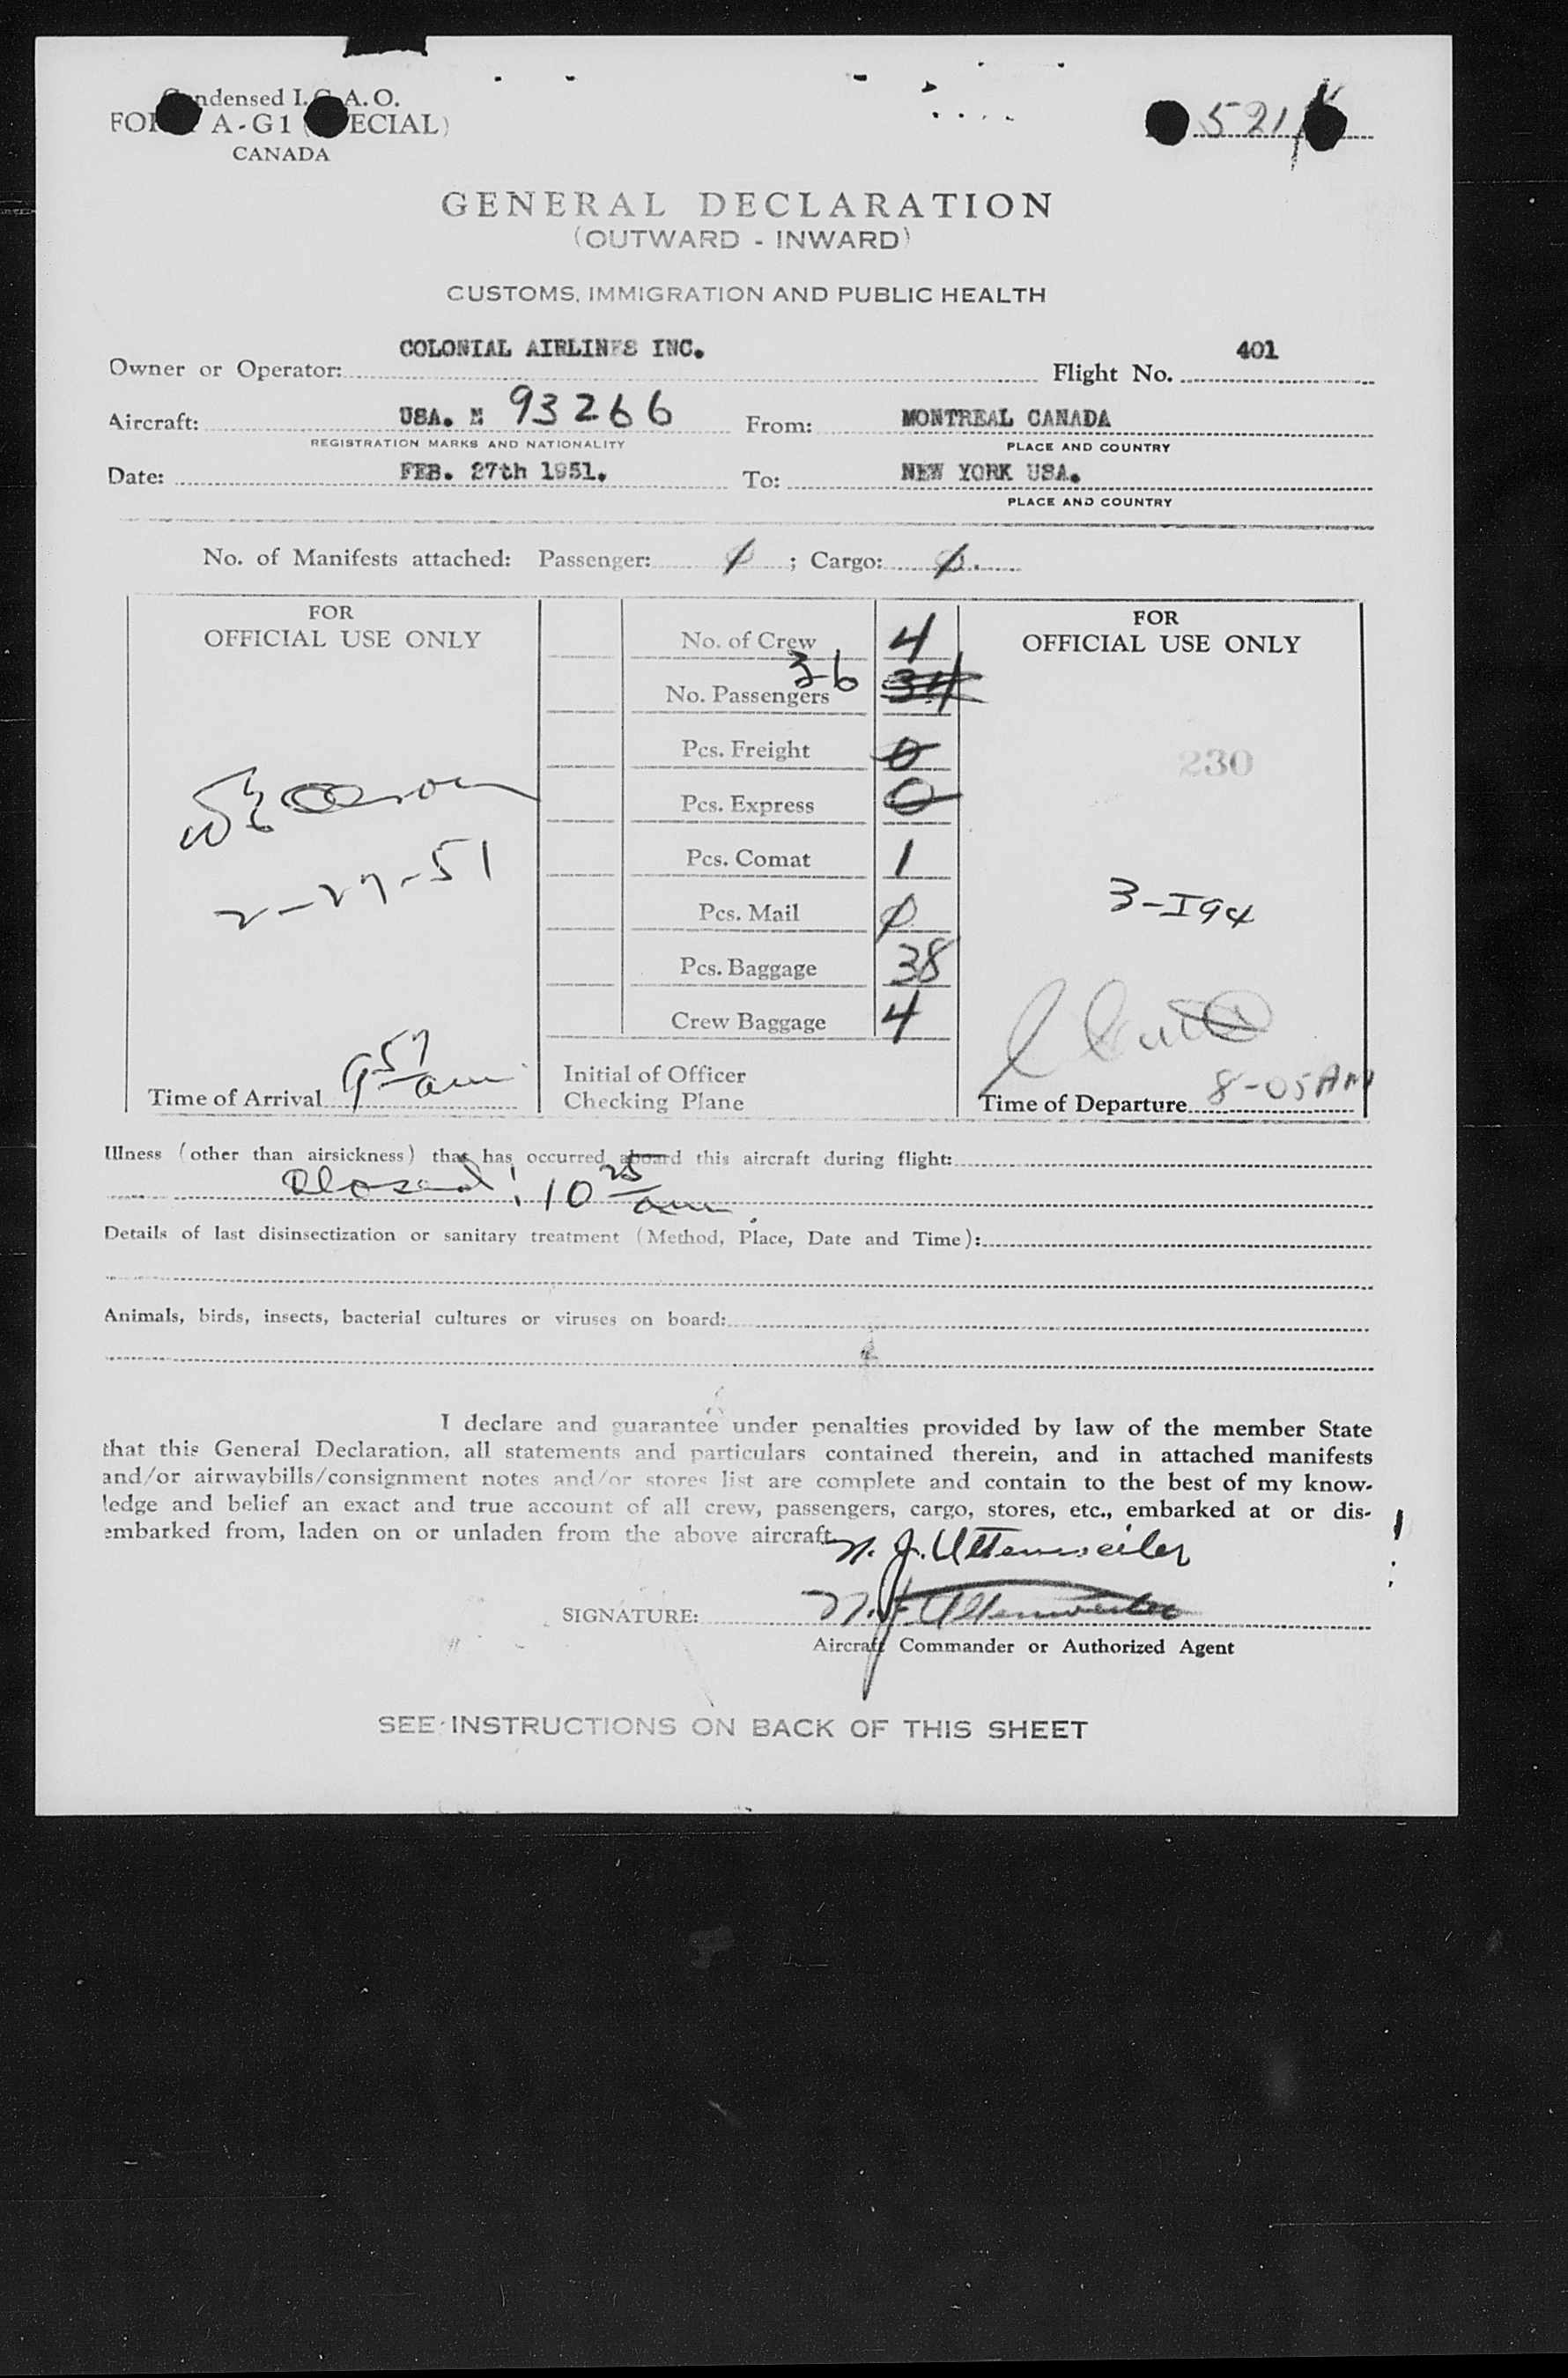 Condensed I.C.A.O.
FORM A-G1 (SPECIAL)
CANADA
521
GENERAL DECLARATION
(OUTWARD - INWARD)
CUSTOMS, IMMIGRATION AND PUBLIC HEALTH
Owner or Operator: COLONIAL AIRLINES INC. Flight No. 401
Aircraft: USA. N 93266 From: MONTREAL CANADA
REGISTRATION MARKS AND NATIONALITY PLACE AND COUNTRY
Date: FEB. 27th 1951. To: NEW YORK USA.
PLACE AND COUNTRY
No. of Manifests attached: Passenger: 0 ; Cargo: 0.
FOR
OFFICIAL USE ONLY
2-27-51
Time of Arrival 9 57 am
No. of Crew 4
No. Passengers 36 34
Pcs. Freight 0
Pcs. Express 0
Pcs. Comat 1
Pcs. Mail 0
Pcs. Baggage 38
Crew Baggage 4
Initial of Officer
Checking Plane
FOR
OFFICIAL USE ONLY
230
3-I94
Time of Departure 8-05 AM
Illness (other than airsickness) that has occurred aboard this aircraft during flight:
Closed: 10 25 am
Details of last disinsectization or sanitary treatment (Method, Place, Date and Time):
Animals, birds, insects, bacterial cultures or viruses on board:
I declare and guarantee under penalties provided by law of the member State
that this General Declaration, all statements and particulars contained therein, and in attached manifests
and/or airwaybills/consignment notes and/or stores list are complete and contain to the best of my know-
ledge and belief an exact and true account of all crew, passengers, cargo, stores, etc., embarked at or dis-
embarked from, laden on or unladen from the above aircraft.
N. J. Uttenweiler
SIGNATURE: N. J. Uttenweiler
Aircraft Commander or Authorized Agent
SEE INSTRUCTIONS ON BACK OF THIS SHEET